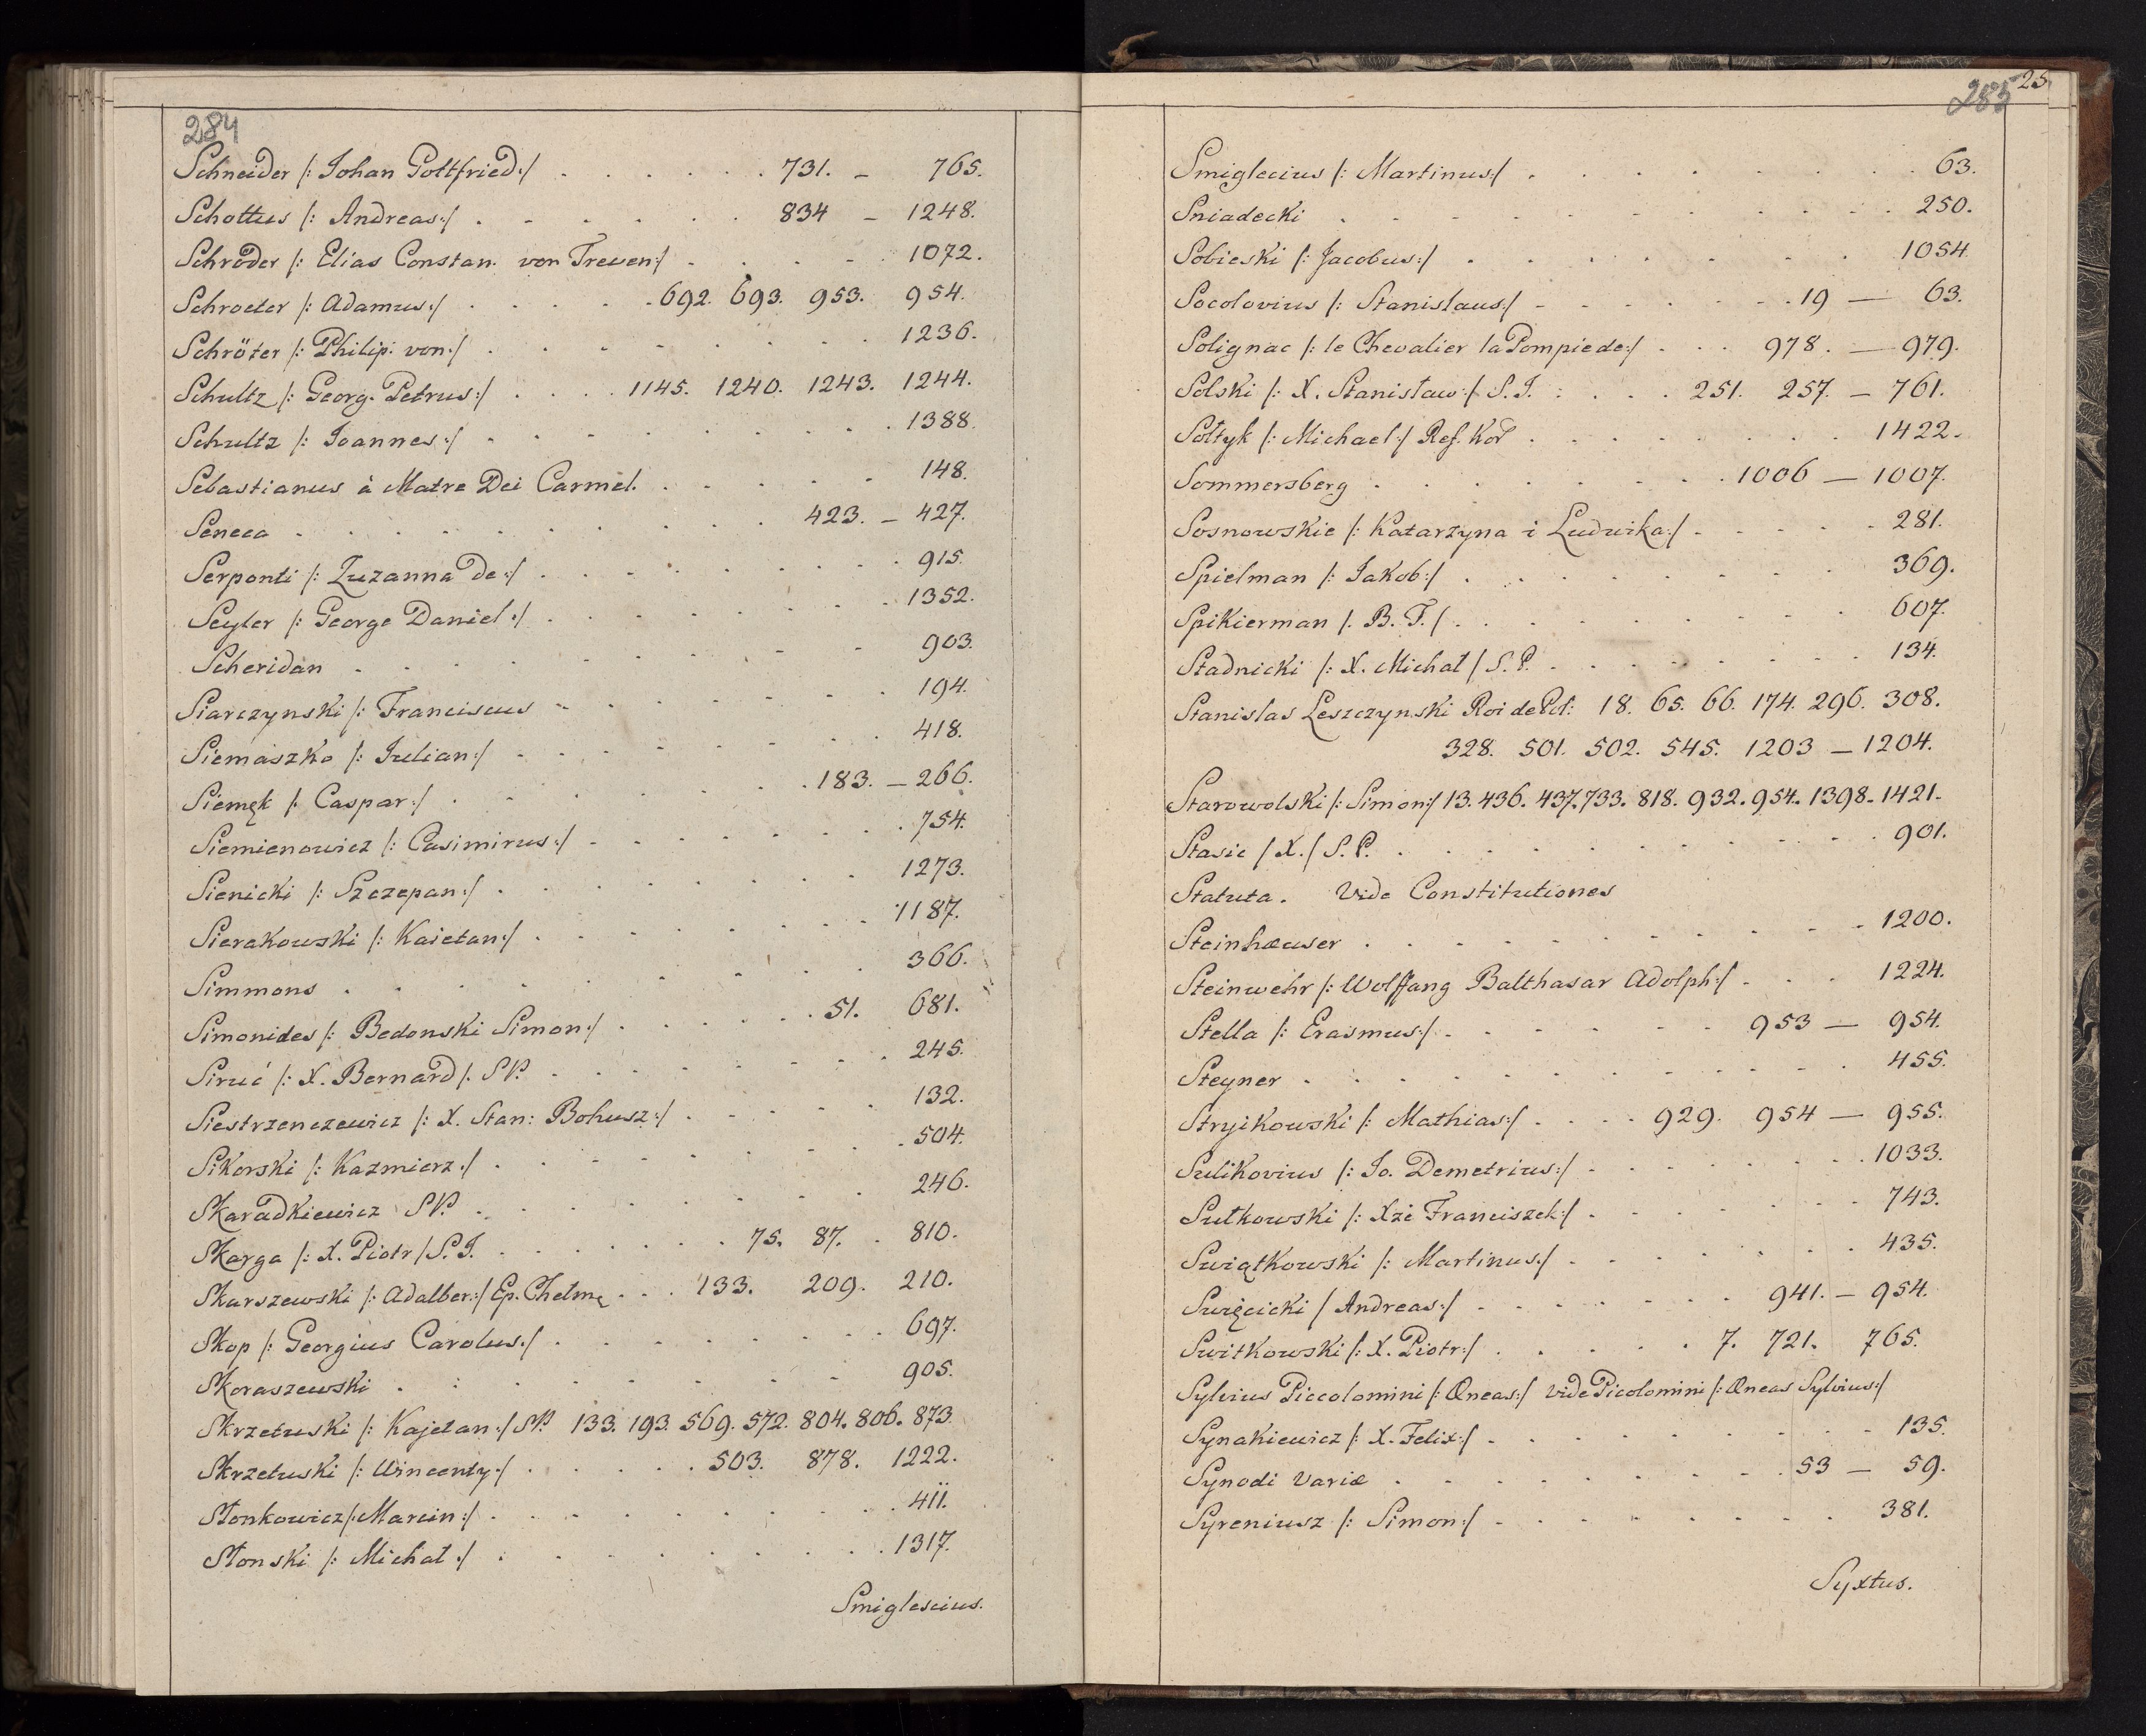 284
Schneider /: Johan Gottfried :/ . . . . . . 731. – 765.
Schottus /: Andreas :/ . . . . . . 834 – 1248.
Schröder /: Elias Constan. von Treuen :/ . . . . 1072.
Schroeter /: Adamus :/ . . . . . 692. 693. 953. 954.
Schröter /: Philip: von :/ . . . . . . . . 1236.
Schultz /: Georg. Petrus :/ . . . . 1145. 1240. 1243. 1244.
Schultz /: Joannes :/ . . . . . . . . . 1388.
Sebastianus à Matre Dei Carmel. . . . . . 148.
Seneca . . . . . . . . . . 423. – 427.
Serponti /: Zuzanna de :/ . . . . . . . . 915.
Seyler /: George Daniel :/ . . . . . . . . 1352.
Scheridan . . . . . . . . . 903.
Siarczynski /: Franciscus . . . . . . . 194.
Siemaszko /: Julian :/ . . . . . . . . 418.
Siemęk /: Caspar :/ . . . . . . . . 183. – 266.
Siemienowicz /: Casimirus :/ . . . . . . . 754.
Sienicki /: Szczepan :/ . . . . . . . . 1273.
Sierakowski /: Kaietan :/ . . . . . . . 1187.
Simmons . . . . . . . . . . 366.
Simonides /: Bedonski Simon :/ . . . . . 51. 681.
Siruć /: X. Bernard /. S.P. . . . . . . . 245.
Siestrzenczewicz /: X. Stan: Bohusz :/ . . . . . 132.
Sikorski /: Kazmierz :/ . . . . . . . . 504.
Skaradkiewicz S.P. . . . . . . . 246.
Skarga /: X. Piotr / S.J. . . . . . . 75. 87. . 810.
Skarszewski /: Adalber: / Ep. Chelmę . . . 133. 209. 210.
Skop /: Georgius Carolus :/ . . . . . . . 697.
Skoraszewski . . . . . . . . 905.
Skrzetuski /: Kajetan :/ S.P. 133. 193. 569. 572. 804. 806. 873.
Skrzetuski /: Wincenty :/ . . . . . 503. 878. 1222.
Słonkowicz /: Marcin :/ . . . . . . . . 411.
Słonski /: Michał :/ . . . . . . . . 1317.
Smiglescius.
285 25
Smiglecius /: Martinus :/ . . . . . . . . 63.
Sniadecki . . . . . . . . . . . 250.
Sobieski /: Jacobus :/ . . . . . . . . 1054.
Socolovius /: Stanislaus :/ . . . . . . 19 — 63.
Solignac /: le Chevalier la Pompie de :/ . . . 978. — 979.
Solski /: X. Stanisław :/ S.J. . . . . 251. 257. – 761.
Sołtyk /: Michael :/ Ref. Kor . . . . . . . 1422.
Sommersberg . . . . . . . . 1006 — 1007.
Sosnowskie /: Katarzyna i Ludwika :/ . . . . . 281.
Spielman /: Jakob :/ . . . . . . . . 369.
Spikierman /. B. F. / . . . . . . . . 607.
Stadnicki /: X. Michał / S.P. . . . . . . . 134.
Stanislas Leszczynski Roi de Pol: 18. 65. 66. 174. 296. 308.
328. 501. 502. 545. 1203 – 1204.
Starowolski /: Simon :/ 13. 436. 437. 733. 818. 932. 954. 1398. 1421.
Stasic / X. / S.P. . . . . . . . . . 901.
Statuta. Vide Constitutiones
Steinhæuser . . . . . . . . . . 1200.
Steinwehr /: Wolffang Balthasar Adolph :/ . . . 1224.
Stella /: Erasmus :/ . . . . . . . 953 — 954.
Steyner . . . . . . . . . . . 455.
Stryikowski /: Mathias :/ . . . . 929. 954 — 955.
Sulikovius /: Jo. Demetrius :/ . . . . . . . 1033.
Sułkowski /: Xże Franciszek :/ . . . . . . . 743.
Swiątkowski /: Martinus :/ . . . . . . . 435.
Swięcicki / Andreas :/ . . . . . . . 941. – 954.
Switkowski /: X. Piotr :/ . . . . . 7. 721. 765.
Sylvius Piccolomini /: Æneas :/ vide Picolomini /: Æneas Sylvius :/
Synakiewicz /: X. Felix :/ . . . . . . . . . 135.
Synodi Variæ . . . . . . . . . 53 — 59.
Syreniusz /: Simon :/ . . . . . . . . 381.
Syxtus.